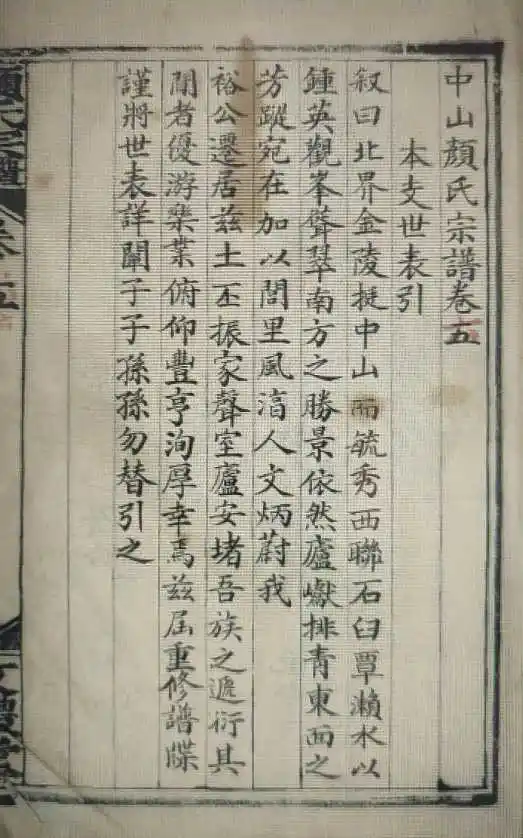 中山顏氏宗譜卷五
本支世表引
叙曰北界金陵挺中山而毓秀西聯石臼覃瀨水以
鍾英觀峯聳翠南方之勝景依然廬巘排青東面之
芳蹤宛在加以閭里風淳人文炳蔚我
裕公遷居兹土丕振家聲室廬安堵吾族之遞衍其
間者優游樂業俯仰豐亨洵厚幸焉兹屆重修譜牒
謹將世表詳闡子子孫孫勿替引之
顏氏宗譜
卷五